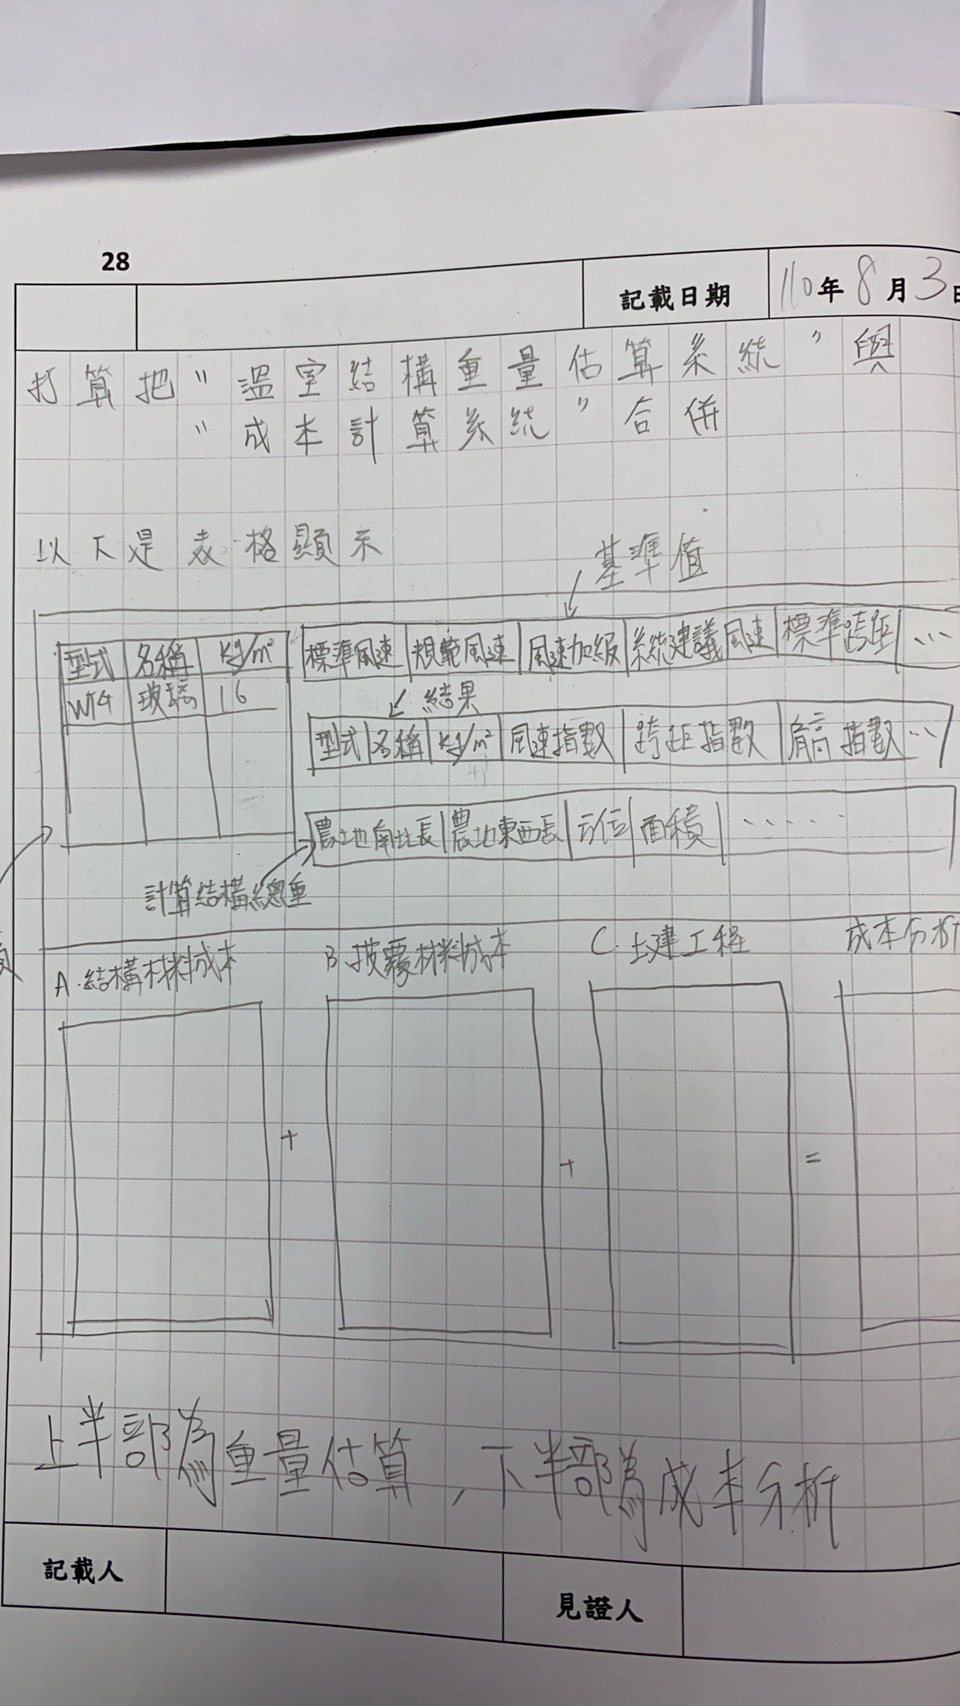 28
記載日期 110年8月3日
打算把"溫室結構重量估算系統"與
"成本計算系統"合併
以下是表格顯示
基準值
型式 名稱 Kg/m²
標準風速 規範風速 風速加級 系統建議風速 標準跨距 ...
WTG 玻璃 16
結果
型式 名稱 Kg/m² 風速指數 跨距指數 肩高指數 ...
農地南北長 農地東西長 方位 面積 ......
計算結構總重
A.結構材料成本 B.披覆材料成本 C.土建工程 成本分析
+ + =
上半部為重量估算,下半部為成本分析
記載人 見證人